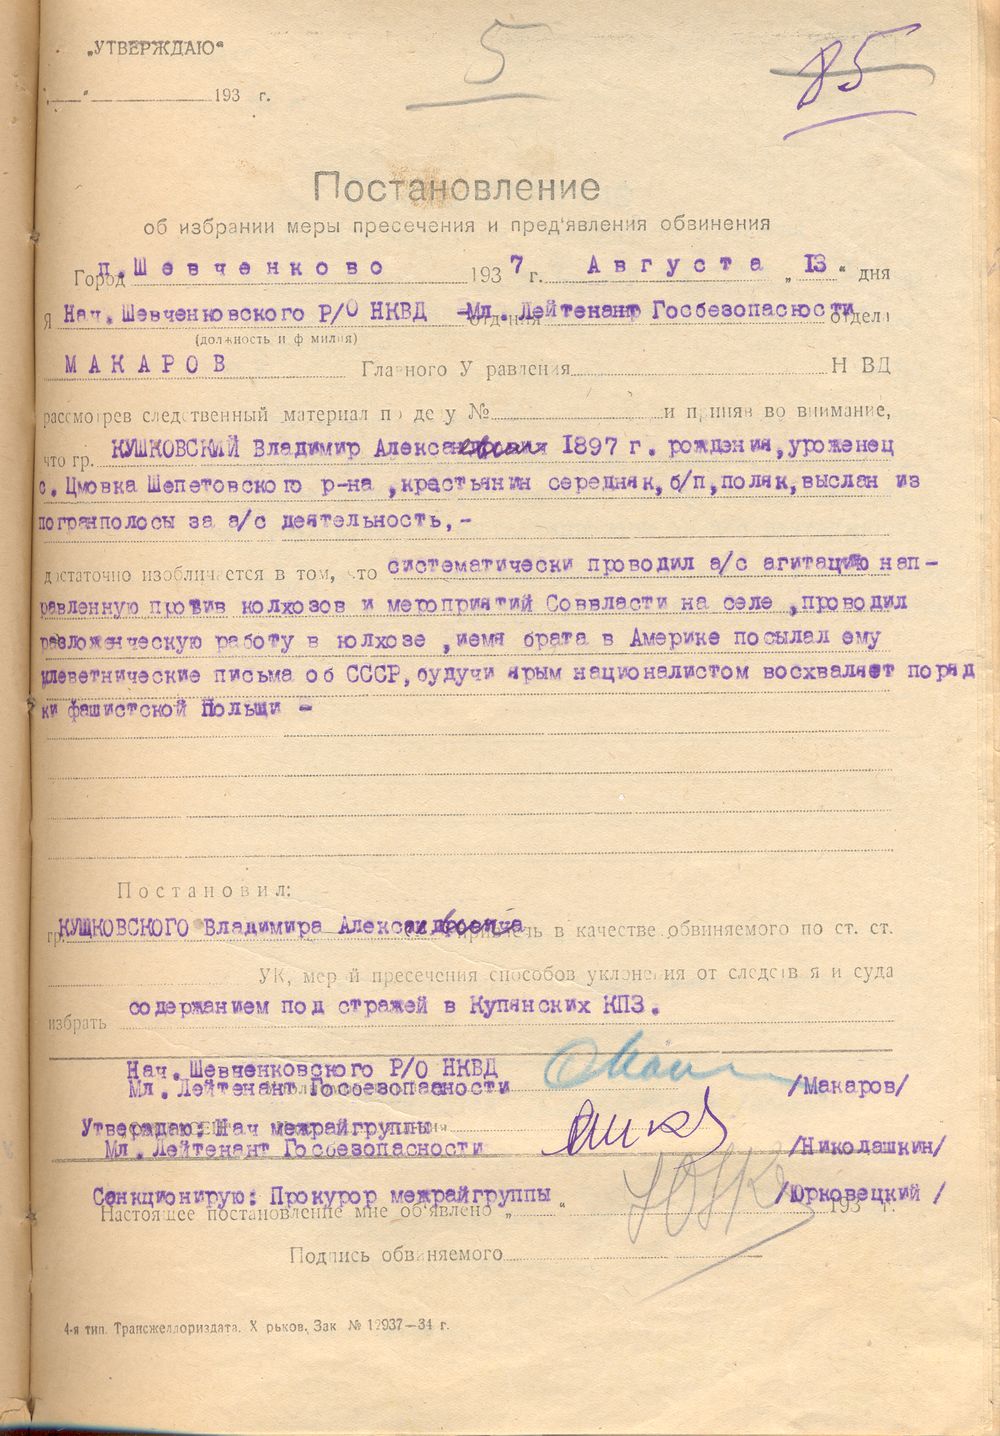 „УТВЕРЖДАЮ“
„ “ 193 г.
5
85
Постановление
об избрании меры пресечения и пред'явления обвинения
Город п. Шевченково 1937 г. Августа „13“ дня
Я Нач. Шевченковского Р/О НКВД -Мл. Лейтенант Госбезопасности отдела
(должность и ф милия)
МАКАРОВ Главного У равления Н ВД
рассмотрев следственный материал по де у № и приняв во внимание,
что гр. КУШКОВСКИЙ Владимир 1897 г. рождения, уроженец
с. Цмовка Шепетовского р-на ,крестьянин середняк, б/п, поляк, выслан из
погранполосы за а/с деятельность,-
достаточно изобличается в том, что систематически проводил а/с агитацию нап-
равленную против колхозов и мероприятий Соввласти на селе ,проводил
разложенческую работу в колхозе ,имея брата в Америке посылал ему
клеветнические письма об СССР, будучи ярым националистом восхваляет поряд
ки фашистской Польши -
Постановил:
гр. КУШКОВСКОГО Владимира привлечь в качестве обвиняемого по ст. ст.
УК, мер й пресечения способов уклонения от следств я и суда
избрать содержанием под стражей в Купянских КПЗ.
Нач. Шевченковского Р/О НКВД
Мл. Лейтенант Госбезопасности /Макаров/
Утверждаю: Нач межрайгруппы
Мл. Лейтенант Госбезопасности /Николашкин/
Санкционирую: Прокурор межрайгруппы /Юрковецкий /
Настоящее постановление мне об'явлено „ “ 193 г.
Подпись обвиняемого
4-я тип. Трансжелдориздата. Х рьков. Зак № 12937—34 г.